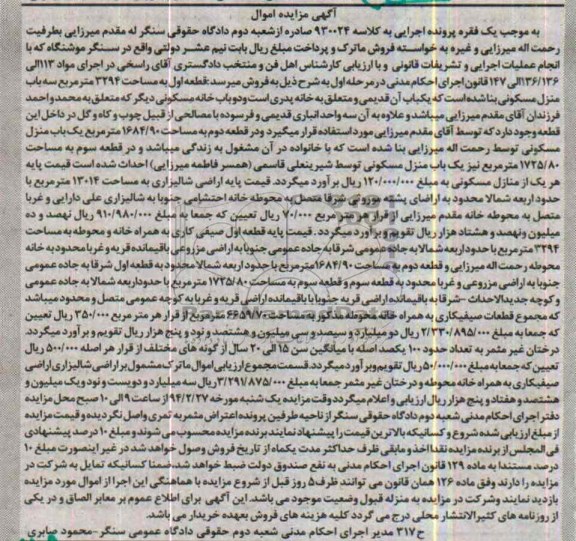 آگهی مزایده اموال
به موجب یک فقره پرونده اجرایی به کلاسه ۹۳۰۰۲۴ صادره ازشعبه دوم دادگاه حقوقی سنگر له مقدم میرزایی بطرفیت
رحمت اله میرزایی و غیره به خواسته فروش ماترک و پرداخت مبلغ ریال بابت نیم عشر دولتی واقع در سنگر موشنگاه که با
انجام عملیات اجرایی و تشریفات قانونی و با ارزیابی کارشناس اهل فن و منتخب دادگستری آقای راسخی در اجرای مواد ۱۱۳الی
۱۳۶/۱۳۶الی ۱۴۷ قانون اجرای احکام مدنی در مرحله اول به شرح ذیل به فروش میرسد:قطعه اول به مساحت ۳۲۹۴ مترمربع سه باب
منزل مسکونی بنا شده است که یکباب آن قدیمی و متعلق به خانه پدری است ودوباب خانه مسکونی دیگر که متعلق به محمد و احمد
فرزندان آقای مقدم میرزایی میباشد و علاوه به آن سه واحد انباری قدیمی و فرسوده با مصالحی از قبیل چوب و کاه و گل در داخل این
قطعه وجود دارد که توسط آقای مقدم میرزایی مورد استفاده قرار میگیرد ودر قطعه دوم به مساحت ۱۶۸۴/۹۰ مترمربع یک باب منزل
مسکونی توسط رحمت اله میرزایی بنا شده است که با خانواده در آن مشغول به زندگی میباشد و در قطعه سوم به مساحت
۱۷۲۵/۸۰ مترمربع نیز یک باب منزل مسکونی توسط شیرینعلی قاسمی (همسر فاطمه میرزایی) احداث شده است قیمت پایه
هر یک از منازل مسکونی به مبلغ ۱۲۰/۰۰۰/۰۰۰ ریال برآورد میگردد. قیمت پایه اراضی شالیزاری به مساحت ۱۳۰۱۴ مترمربع با
حدود اربعه شمالا محدود به اراضی پشته موروثی شرقا متصل به محوطه خانه احتشامی جنوبا به شالیزاری علی دارایی و غربا
متصل به محوطه خانه مقدم میرزایی از قرار هر متر مربع ۷۰/۰۰۰ ریال تعیین که جمعا به مبلغ ۹۱۰/۹۸۰/۰۰۰ ریال نهصد و ده
میلیون ونهصد و هشتاد هزار ریال تقویم و برآورد میگردد. قیمت پایه قطعه اول صیفی کاری به همراه خانه و محوطه به مساحت
۳۲۹۴ مترمربع با حدود اربعه شمالا به جاده عمومی شرقا به جاده عمومی جنوبا به اراضی مزروعی باقیمانده قریه و غربا محدود به خانه
محوطه رحمت اله میرزایی و قطعه دوم به مساحت ۱۶۸۴/۹۰مترمربع با حدود اربعه شمالا محدود به قطعه اول شرقا به جاده عمومی
جنوبا به اراضی مزروعی و غربا محدود به قطعه سوم و قطعه سوم به مساحت ۱۷۲۵/۸۰ مترمربع با حدود اربعه شمالا به جاده عمومی
و کوچه جدیدالاحداث -شرقا به باقیمانده اراضی قریه جنوبا با باقیمانده اراضی قریه و غربا به کوچه عمومی متصل و محدود میباشد
که مجموع قطعات صیفیکاری به همراه خانه محوطه مذکور به مساحت ۶۶۵۹/۷۰ مترمربع از قرار هر متر مربع ۳۵۰/۰۰۰ ریال تعیین
که جمعا به مبلغ ۲/۳۳۰/۸۹۵/۰۰۰ ریال دو میلیارد و سیصد و سی میلیون و هشتصد و نود و پنج هزار ریال تقویم و برآورد میگردد.
درختان غیر مثمر به تعداد حدود ۱۰۰ یکصد اصله با میانگین سن ۱۵ الی ۲۰ سال از گونه های مختلف از قرار هر اصله ۵۰۰/۰۰۰ ریال
تعیین که جمعا به مبلغ ۵۰/۰۰۰/۰۰۰ ریال تقویم وبرآورد میگردد. قسمت مجموع ارزیابی اموال ماترک مشمول بر اراضی شالیزاری اراضی
صیفیکاری به همراه خانه محوطه و درختان غیر مثمر جمعا به مبلغ ۳/۲۹۱/۸۷۵/۰۰۰ ریال سه میلیارد و دویست و نود و یک میلیون و
هشتصد و هفتاد و پنج هزار ریال ارزیابی و اعلام میگردد وقت مزایده یک شنبه مورخه ۹۴/۲/۲۷ از ساعت ۹ الی ۱۰ صبح محل مزایده
دفتر اجرای احکام مدنی شعبه دوم دادگاه حقوقی سنگر از ناحیه طرفین پرونده اعتراض مثمر به ثمری واصل نگردیده و قیمت مزایده
از مبلغ ارزیابی شده شروع و کسانیکه بالاترین قیمت را پیشنهاد نمایند برنده مزایده محسوب می شوند و مبلغ ۱۰ درصد پیشنهادی
فی المجلس از برنده مزایده نقدا اخذ و مابقی ظرف حداکثر مدت یکماه از تاریخ فروش وصول خواهد شد در غیر اینصورت مبلغ ۱۰
درصد مستندا به ماده ۱۲۹ قانون اجرای احکام مدنی به نفع صندوق دولت ضبط خواهد شد.ضمنا کسانیکه تمایل به شرکت در
مزایده را دارند وفق ماده ۱۲۶ همان قانون می توانند ظرف۵ روز قبل از شروع مزایده با هماهنگی این اجرا از اموال مورد مزایده
بازدید نمایند وشرکت در مزایده به منزله قبول وضعیت موجود می باشد. این آگهی برای اطلاع عموم بر معابر الصاق و در یکی
از روزنامه های کثیرالانتشار محلی درج می گردد کلیه هزینه های فروش بعهده خریدار می باشد.
ح ۳۱۷ مدیر اجرای احکام مدنی شعبه دوم حقوقی دادگاه عمومی سنگر-محمود صابری